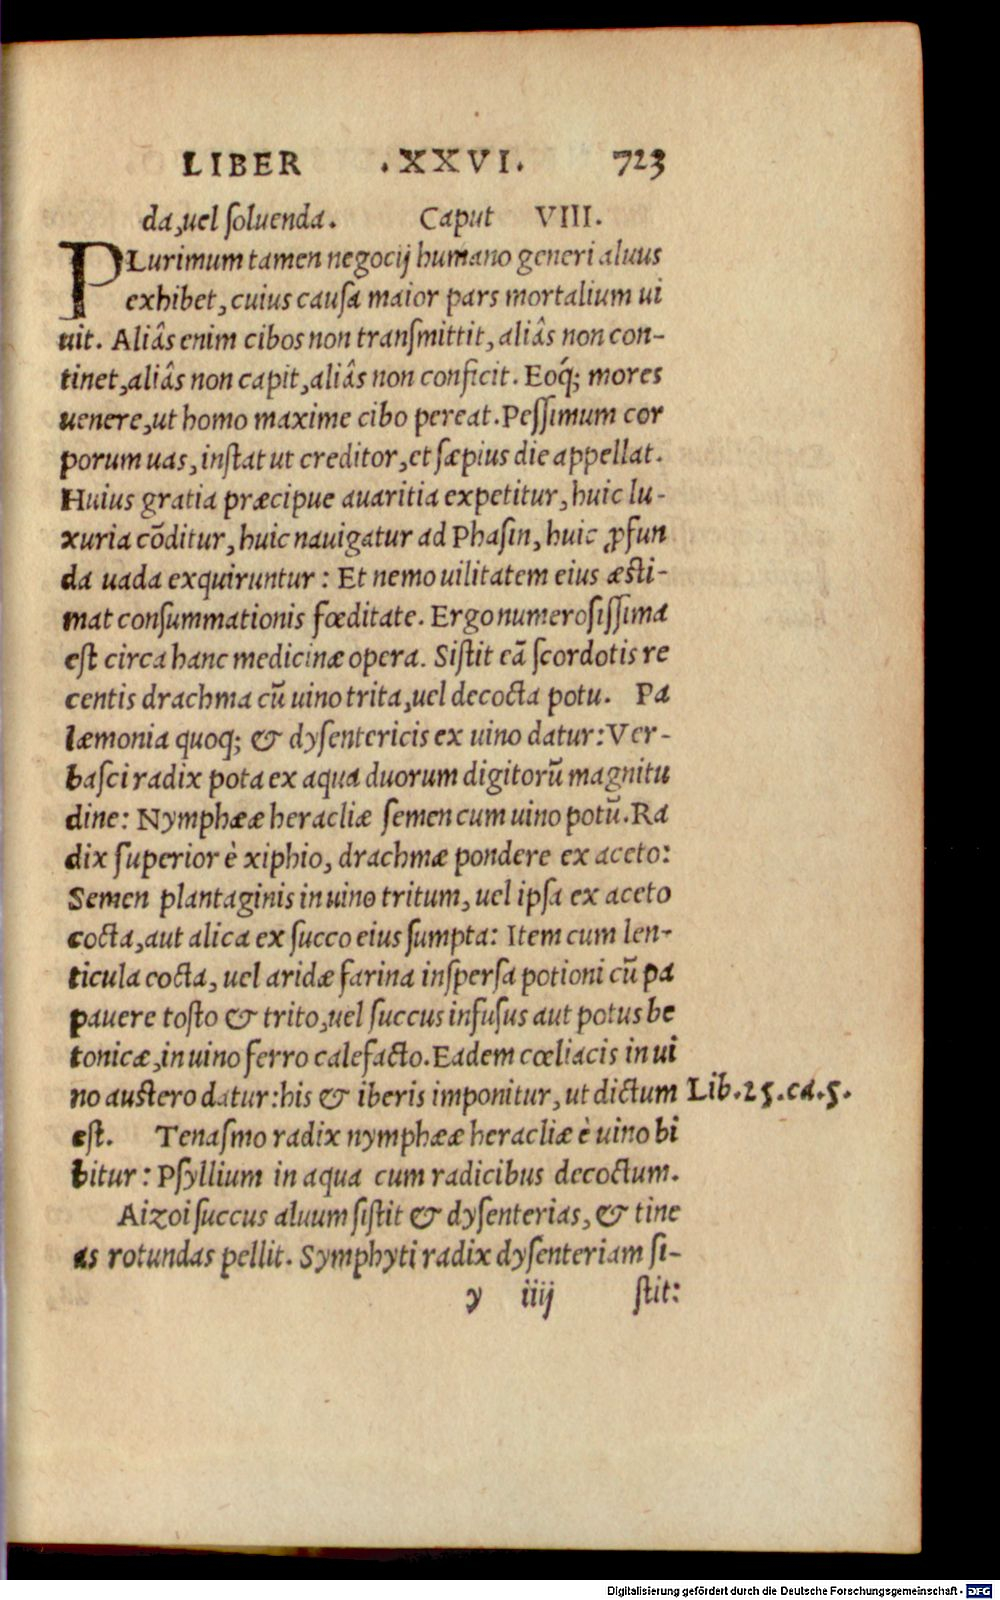 LIBER .XXVI. 723
da, uel ſoluenda. Caput VIII.
PLurimum tamen negocij humano generi aluus
exhibet, cuius cauſa maior pars mortalium ui
uit. Aliâs enim cibos non tranſmittit, aliâs non con-
tinet, aliâs non capit, aliâs non conficit. Eoq́; mores
uenere, ut homo maxime cibo pereat. Peſſimum cor
porum uas, inſtat ut creditor, et ſæpius die appellat.
Huius gratia præcipue auaritia expetitur, huic lu-
xuria cõditur, huic nauigatur ad Phaſin, huic ꝓfun
da uada exquiruntur: Et nemo uilitatem eius æſti-
mat conſummationis fœditate. Ergo numeroſiſſima
eſt circa hanc medicinæ opera. Siſtit eã ſcordotis re
centis drachma cũ uino trita, uel decocta potu. Pa
læmonia quoq; & dyſentericis ex uino datur: Ver-
baſci radix pota ex aqua duorum digitorũ magnitu
dine: Nymphææ heracliæ ſemen cum uino potũ. Ra
dix ſuperior è xiphio, drachmæ pondere ex aceto:
Semen plantaginis in uino tritum, uel ipſa ex aceto
cocta, aut alica ex ſucco eius ſumpta: Item cum len-
ticula cocta, uel aridæ farina inſperſa potioni cũ pa
pauere toſto & trito, uel ſuccus infuſus aut potus be
tonicæ, in uino ferro calefacto. Eadem cœliacis in ui
no auſtero datur: his & iberis imponitur, ut dictum Lib.25.ca.5.
eſt. Tenaſmo radix nymphææ heracliæ è uino bi
bitur: Pſyllium in aqua cum radicibus decoctum.
Aizoi ſuccus aluum ſiſtit & dyſenterias, & tine
as rotundas pellit. Symphyti radix dyſenteriam ſi-
y iiij ſtit:
Digitalisierung gefördert durch die Deutsche Forschungsgemeinschaft - DFG